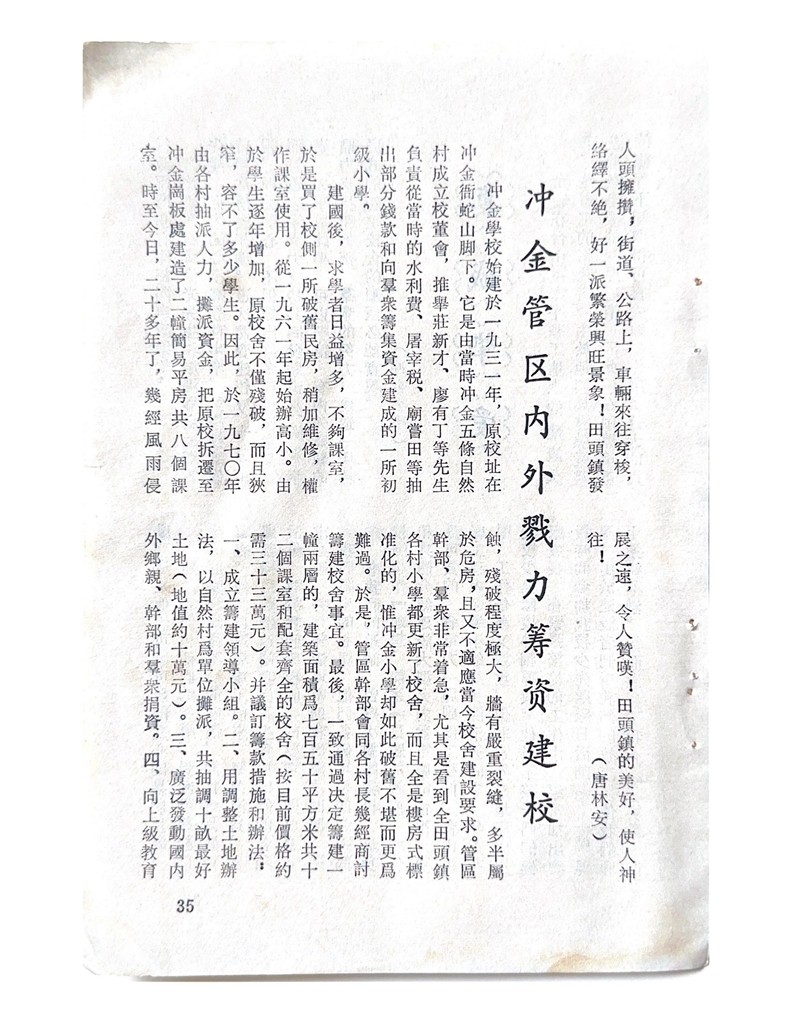 人頭擁攢，街道、公路上，車輛來往穿梭，
絡繹不絶，好一派繁榮興旺景象！田頭鎮發
展之速，令人贊嘆！田頭鎮的美好，使人神
往！
（唐林安）
冲金管区内外戮力筹资建校
冲金學校始建於一九三一年，原校址在
冲金衙蛇山脚下。它是由當時冲金五條自然
村成立校董會，推舉莊新才、廖有丁等先生
負責從當時的水利費、屠宰税、廟嘗田等抽
出部分錢款和向羣衆籌集資金建成的一所初
級小學。
建國後，求學者日益增多，不夠課室，
於是買了校側一所破舊民房，稍加維修，權
作課室使用。從一九六一年起始辦高小。由
於學生逐年增加，原校舍不僅殘破，而且狹
窄，容不了多少學生。因此，於一九七〇年
由各村抽派人力，攤派資金，把原校拆遷至
冲金崗板處建造了二幢簡易平房共八個課
室。時至今日，二十多年了，幾經風雨侵
蝕，殘破程度極大，牆有嚴重裂縫，多半屬
於危房，且又不適應當今校舍建設要求。管區
幹部、羣衆非常着急，尤其是看到全田頭鎮
各村小學都更新了校舍，而且全是樓房式標
准化的，惟冲金小學却如此破舊不堪而更爲
難過。於是，管區幹部會同各村長幾經商討
籌建校舍事宜。最後，一致通過决定籌建一
幢兩層的，建築面積爲七百五十平方米共十
二個課室和配套齊全的校舍（按目前價格約
需三十三萬元）。并議訂籌款措施和辦法：
一、成立籌建領導小組。二、用調整土地辦
法，以自然村爲單位攤派，共抽調十畝最好
土地（地值約十萬元）。三、廣泛發動國内
外鄉親、幹部和羣衆捐資。四、向上級教育
35